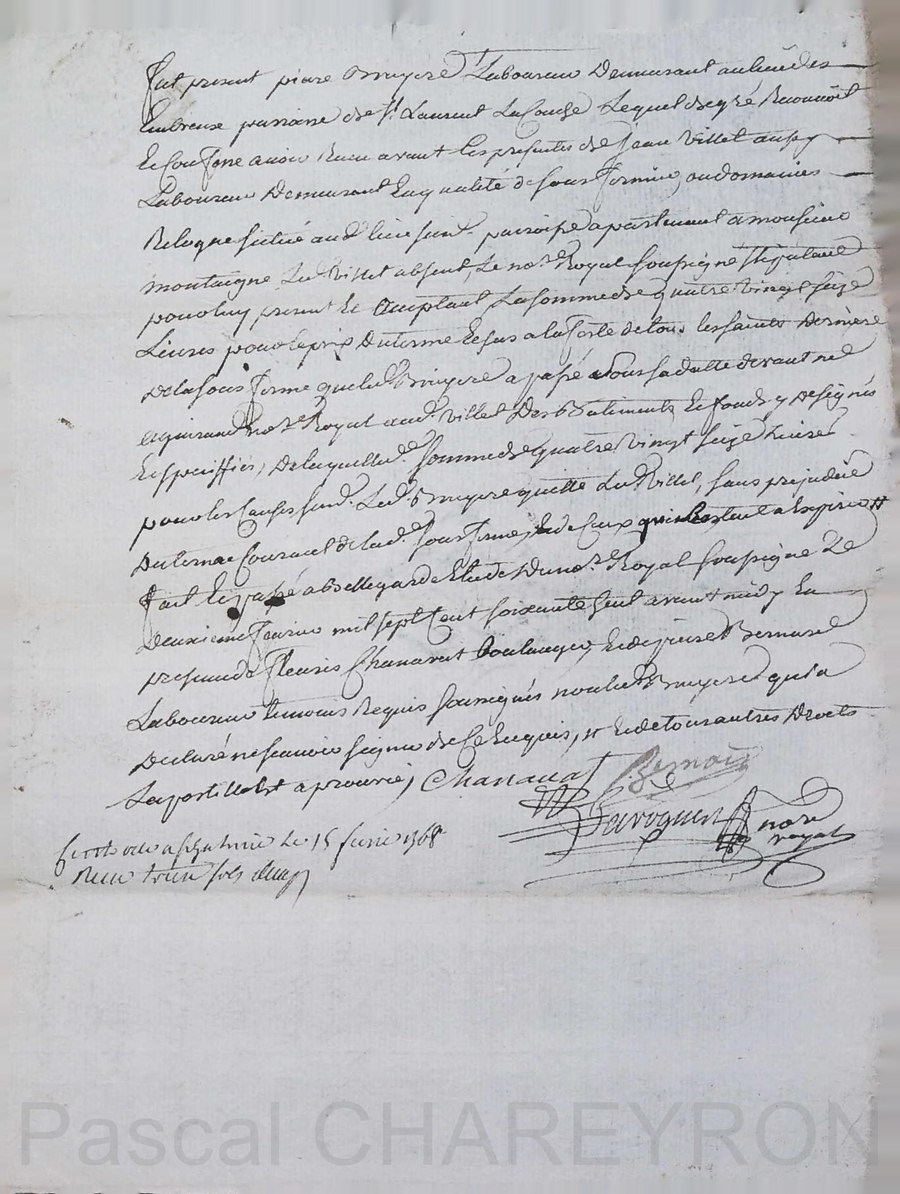 fut present piare Bruyere Laboureur Demeurant au lieu des
paroisse de St. Laurent La Conche Lequel de gré Reconnoit
Et Confesse avoir Receu avant les presentes de Jean Villet aussy
Laboureur Demeurant En qualité de sous fermier du domaine
situé aud. lieu susd. paroisse apartenant a monsieur
montaigne Led. Villet absent, Le no.re Royal soussigné stipulant
pour luy present Et acceptant La somme de quatre vingt seize
Livres pour le prix Du terme Echus a la feste de tous les saints Derniere
De la sous ferme que led. Bruyere a passé sous sa datte devant
no.re Royal aud. Villet Des Batiments Et fonds y Designés
Et speciffiés, De laquelle d. somme de quatre vingt seize Livres
pour les Causes susd. Led. Bruyere quitte Led. Villet, sans prejudice
Du terme Courant de lad. sous ferme, Et de Ceux qui Restent a Expirer #
fait Et passé a Bellegarde Etude Du no.re Royal soussigné Le
Deuxieme fevrier mil sept Cent soixante huit avant midy En
presence de fleuris Chanavat Boulanger, Et de pierre Bernard
Laboureur temoins Requis soussignés non led. Bruyere qui a
Declaré ne scavoir signer de Ce Enquis, # Et de tous autres Droits
La postille Est aprouvée, Chanavat
no.re
royal
le 15 fevrier 1768
Receu treize sols
Pascal CHAREYRON